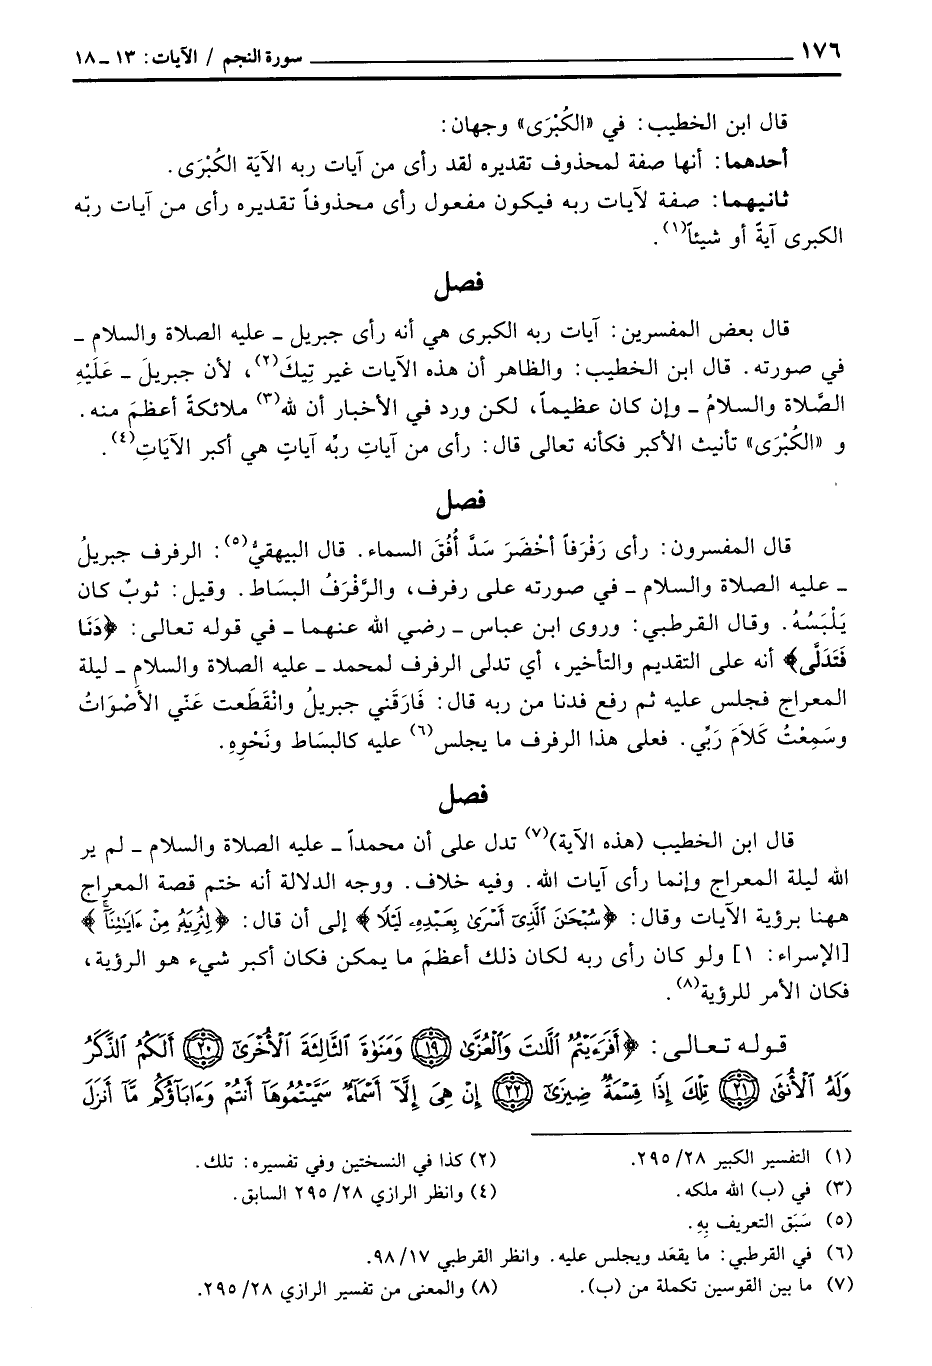 ١٧٦ سورة النجم / الآيات: ١٣ ـ ١٨
قال ابن الخطيب: في «الكُبْرَى» وجهان:
أحدهما: أنها صفة لمحذوف تقديره لقد رأى من آيات ربه الآية الكُبْرَى.
ثانيهما: صفة لآيات ربه فيكون مفعول رأى محذوفاً تقديره رأى من آيات ربّه
الكبرى آيةً أو شيئاً(١).
فصل
قال بعض المفسرين: آيات ربه الكبرى هي أنه رأى جبريل ـ عليه الصلاة والسلام ـ
في صورته. قال ابن الخطيب: والظاهر أن هذه الآيات غير تِيكَ(٢)، لأن جبريلَ ـ عَلَيْهِ
الصَّلاة والسلامُ ـ وإن كان عظيماً، لكن ورد في الأخبار أن لله(٣) ملائكةً أعظمَ منه.
و «الكُبْرَى» تأنيث الأكبر فكأنه تعالى قال: رأى من آياتِ ربِّه آياتٍ هي أكبر الآيَاتِ(٤).
فصل
قال المفسرون: رأى رَفْرَفاً أخْضَرَ سَدَّ أُفُقَ السماء. قال البيهقيُّ(٥): الرفرف جبريلُ
ـ عليه الصلاة والسلام ـ في صورته على رفرف، والرَّفْرَفُ البسَاط. وقيل: ثوبٌ كان
يَلْبَسُهُ. وقال القرطبي: وروى ابن عباس ـ رضي الله عنهما ـ في قوله تعالى: ﴿دَنَا
فَتَدَلَّى﴾ أنه على التقديم والتأخير، أي تدلى الرفرف لمحمد ـ عليه الصلاة والسلام ـ ليلة
المعراج فجلس عليه ثم رفع فدنا من ربه قال: فَارَقَني جبريلُ وانْقَطَعت عَنّي الأصْوَاتُ
وسَمِعْتُ كَلاَمَ رَبِّي. فعلى هذا الرفرف ما يجلس(٦) عليه كالبسَاط ونَحْوِهِ.
فصل
قال ابن الخطيب (هذه الآية)(٧) تدل على أن محمداً ـ عليه الصلاة والسلام ـ لم ير
الله ليلة المعراج وإنما رأى آيات الله. وفيه خلاف. ووجه الدلالة أنه ختم قصة المعراج
ههنا برؤية الآيات وقال: ﴿سُبْحَٰنَ ٱلَّذِىٓ أَسْرَىٰ بِعَبْدِهِۦ لَيْلًا﴾ إلى أن قال: ﴿لِنُرِيَهُۥ مِنْ ءَايَٰتِنَآ﴾
[الإسراء: ١] ولو كان رأى ربه لكان ذلك أعظمَ ما يمكن فكان أكبر شيء هو الرؤية،
فكان الأمر للرؤية(٨).
قوله تعالى: ﴿أَفَرَءَيْتُمُ ٱللَّٰتَ وَٱلْعُزَّىٰ ١٩ وَمَنَوٰةَ ٱلثَّالِثَةَ ٱلْأُخْرَىٰٓ ٢٠ أَلَكُمُ ٱلذَّكَرُ
وَلَهُ ٱلْأُنثَىٰ ٢١ تِلْكَ إِذًا قِسْمَةٌ ضِيزَىٰٓ ٢٢ إِنْ هِىَ إِلَّآ أَسْمَآءٌ سَمَّيْتُمُوهَآ أَنتُمْ وَءَابَآؤُكُم مَّآ أَنزَلَ
(١) التفسير الكبير ٢٨/ ٢٩٥. (٢) كذا في النسختين وفي تفسيره: تلك.
(٣) في (ب) الله ملكه. (٤) وانظر الرازي ٢٨/ ٢٩٥ السابق.
(٥) سَبَق التعريف بِهِ.
(٦) في القرطبي: ما يقعَد ويجلس عليه. وانظر القرطبي ١٧/ ٩٨.
(٧) ما بين القوسين تكملة من (ب). (٨) والمعنى من تفسير الرازي ٢٨/ ٢٩٥.